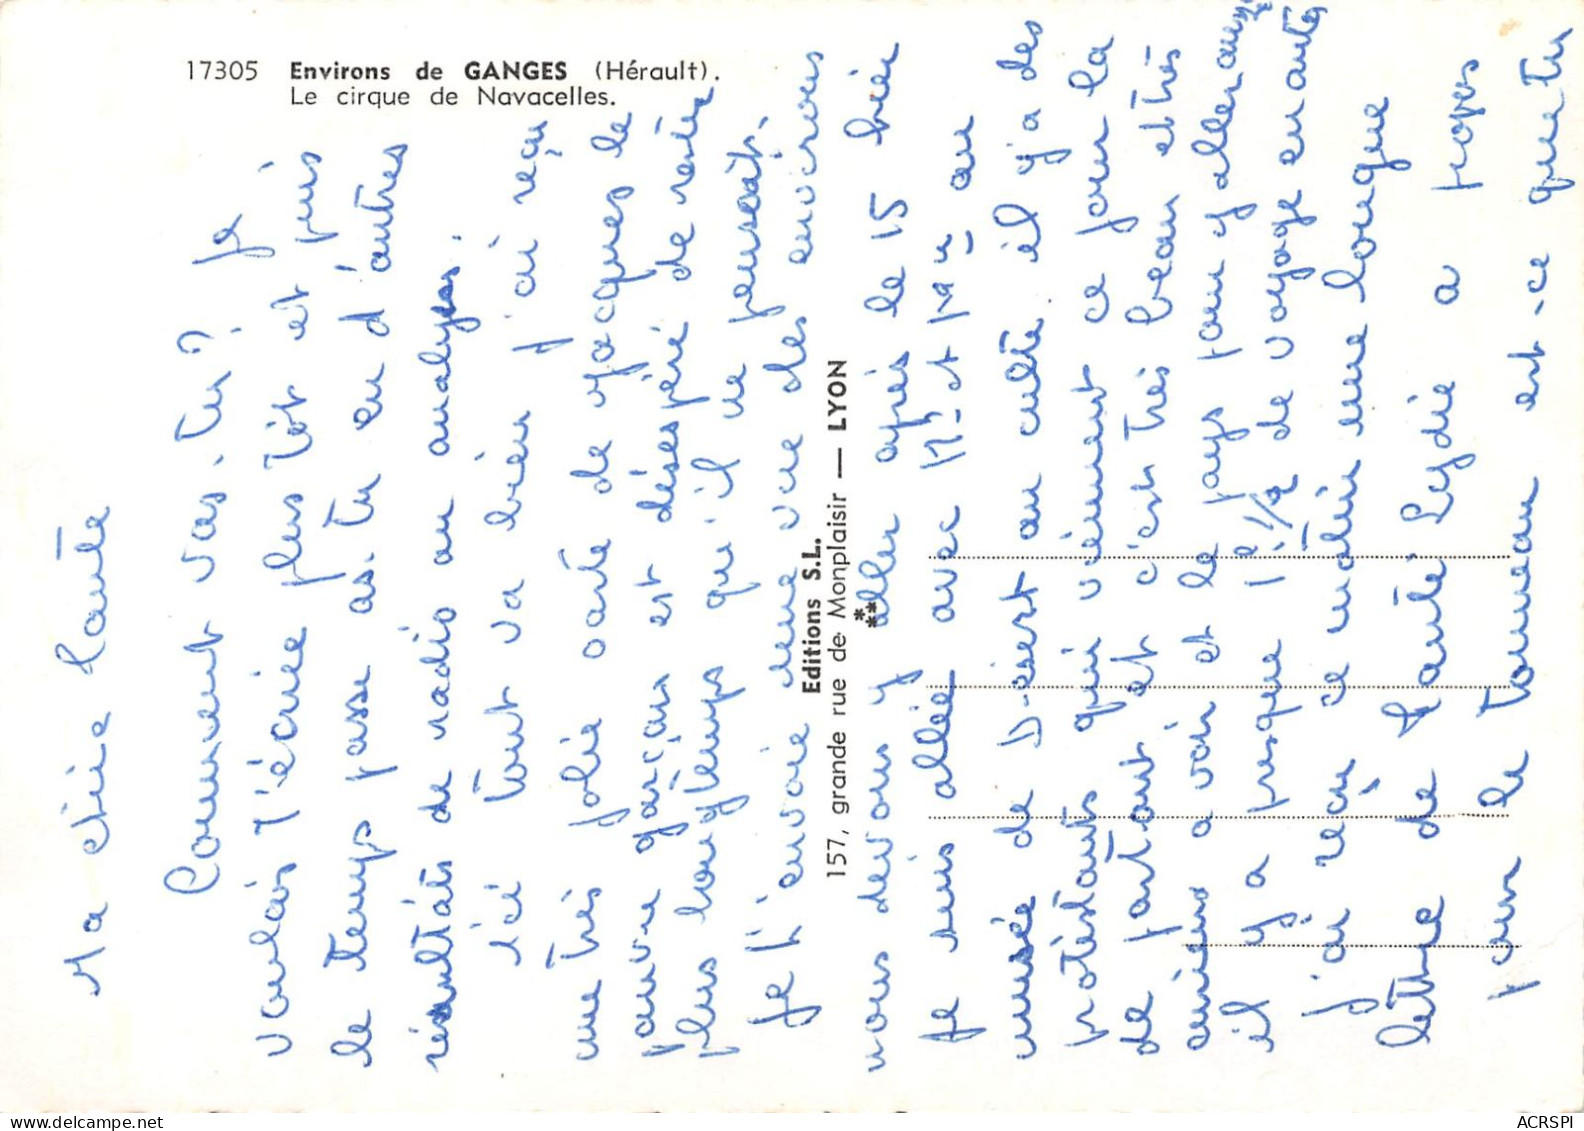 17305 Environs de GANGES (Hérault).
Le cirque de Navacelles.
Editions S.L.
157, grande rue de Monplaisir — LYON
Ma chère Tante
Comment vas-tu? Je
voulais t'écrire plus tôt et puis
le temps passe as-tu eu d'autres
résultats de radio ou analyses.
Ici tout va bien j'ai reçu
une très jolie carte de Jacques le
pauvre garçon est désespéré de rester
plus longtemps qu'il ne pensait.
Je t'envoie une vue des environs
nous devons y aller après le 15 hier
je suis allée avec et au
musée du Désert au culte. il y a des
protestants qui viennent ce jour là
de partout et c'est très beau et très
curieux a voir et le pays pour y aller aussi
il y a presque 1h 1/2 de voyage en auto
j'ai reçu ce matin une longue
lettre de Tante Lydie a propos
pour le tonneau est-ce que tu
ACRSPI